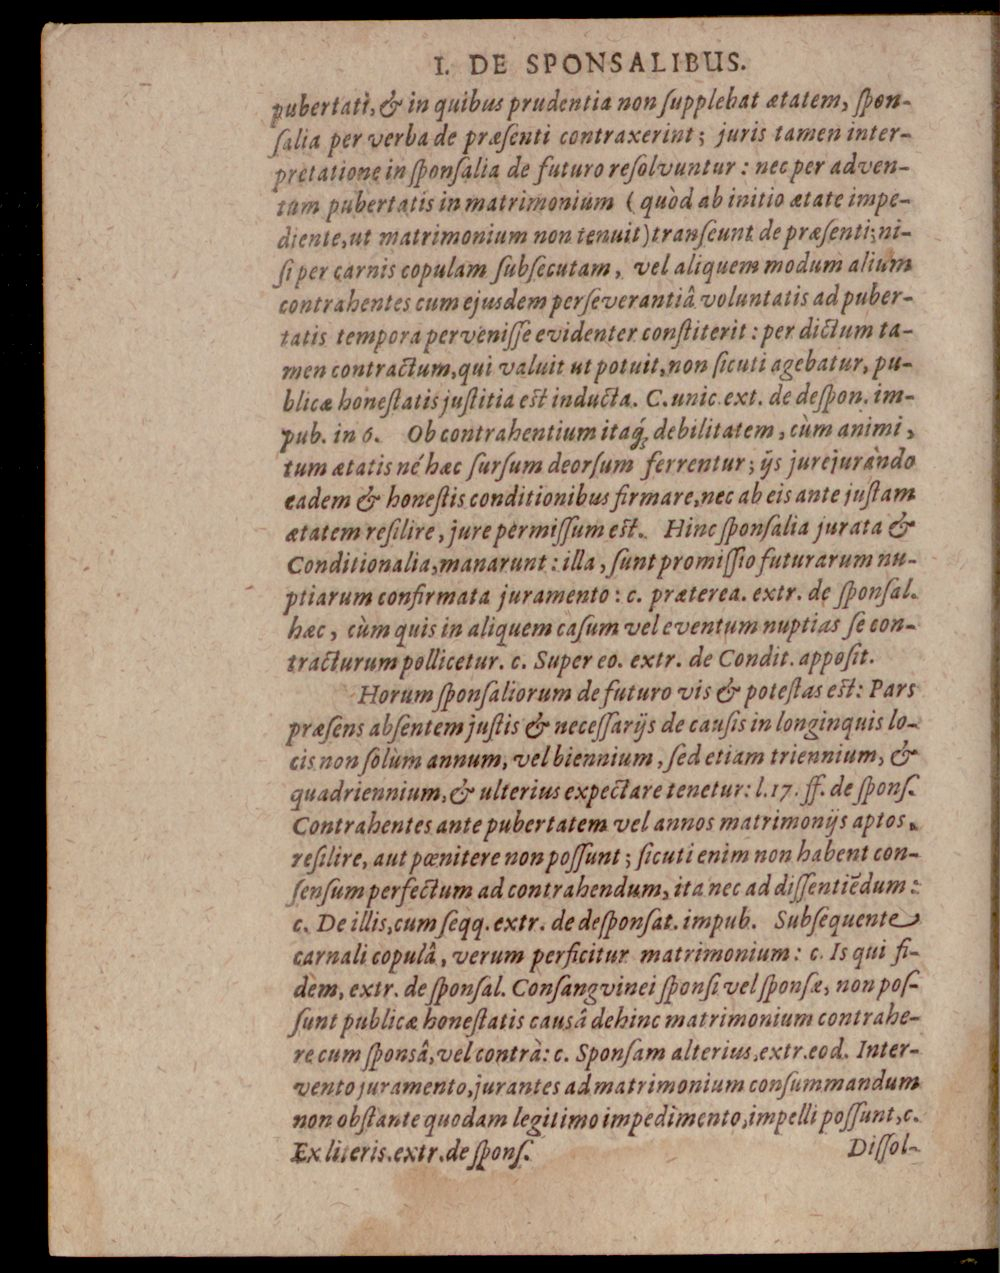 I. DE SPONSALIBUS.
pubertati, & in quibus prudentia non ſupplebat ætatem, ſpon-
ſalia per verba de præſenti contraxerint; juris tamen inter-
pretatione in ſponſalia de futuro reſolvuntur: nec per adven-
tum pubertatis in matrimonium (quòd ab initio ætate impe-
diente, ut matrimonium non tenuit) tranſeunt de præſenti; ni-
ſi per carnis copulam ſubſecutam, vel aliquem modum alium
contrahentes cum ejusdem perſeverantiâ voluntatis ad puber-
tatis tempora perveniſſe evidenter conſtiterit: per dictum ta-
men contractum, qui valuit ut potuit, non ſicuti agebatur, pu-
blicæ honeſtatis juſtitia eſt inducta. C. unic. ext. de deſpon. im-
pub. in 6. Ob contrahentium itaq́; debilitatem, cùm animi,
tum ætatis né hæc ſurſum deorſum ferrentur; ijs jurejurando
eadem & honeſtis conditionibus firmare, nec ab eis ante juſtam
ætatem reſilire, jure permiſſum eſt. Hinc ſponſalia jurata &
Conditionalia, manarunt: illa, ſunt promiſſio futurarum nu-
ptiarum confirmata juramento: c. præterea. extr. de ſponſal.
hæc, cùm quis in aliquem caſum vel eventum nuptias ſe con-
tracturum pollicetur. c. Super eo. extr. de Condit. appoſit.
Horum ſponſaliorum de futuro vis & poteſtas eſt: Pars
præſens abſentem juſtis & neceſſarijs de cauſis in longinquis lo-
cis non ſolùm annum, vel biennium, ſed etiam triennium, &
quadriennium, & ulterius expectare tenetur: l. 17. ff. de ſponſ.
Contrahentes ante pubertatem vel annos matrimonijs aptos,
reſilire, aut pœnitere non poſſunt; ſicuti enim non habent con-
ſenſum perfectum ad contrahendum, ita nec ad diſſentiēdum:
c. De illis, cum ſeqq. extr. de deſponſat. impub. Subſequente
carnali copulâ, verum perficitur matrimonium: c. Is qui fi-
dem, extr. de ſponſal. Conſangvinei ſponſi vel ſponſæ, non poſ-
ſunt publicæ honeſtatis causâ dehinc matrimonium contrahe-
re cum ſponsâ, vel contrà: c. Sponſam alterius, extr. eod. Inter-
vento juramento, jurantes ad matrimonium conſummandum
non obſtante quodam legitimo impedimento, impelli poſſunt, c.
Ex literis. extr. de ſponſ.
Diſſol-